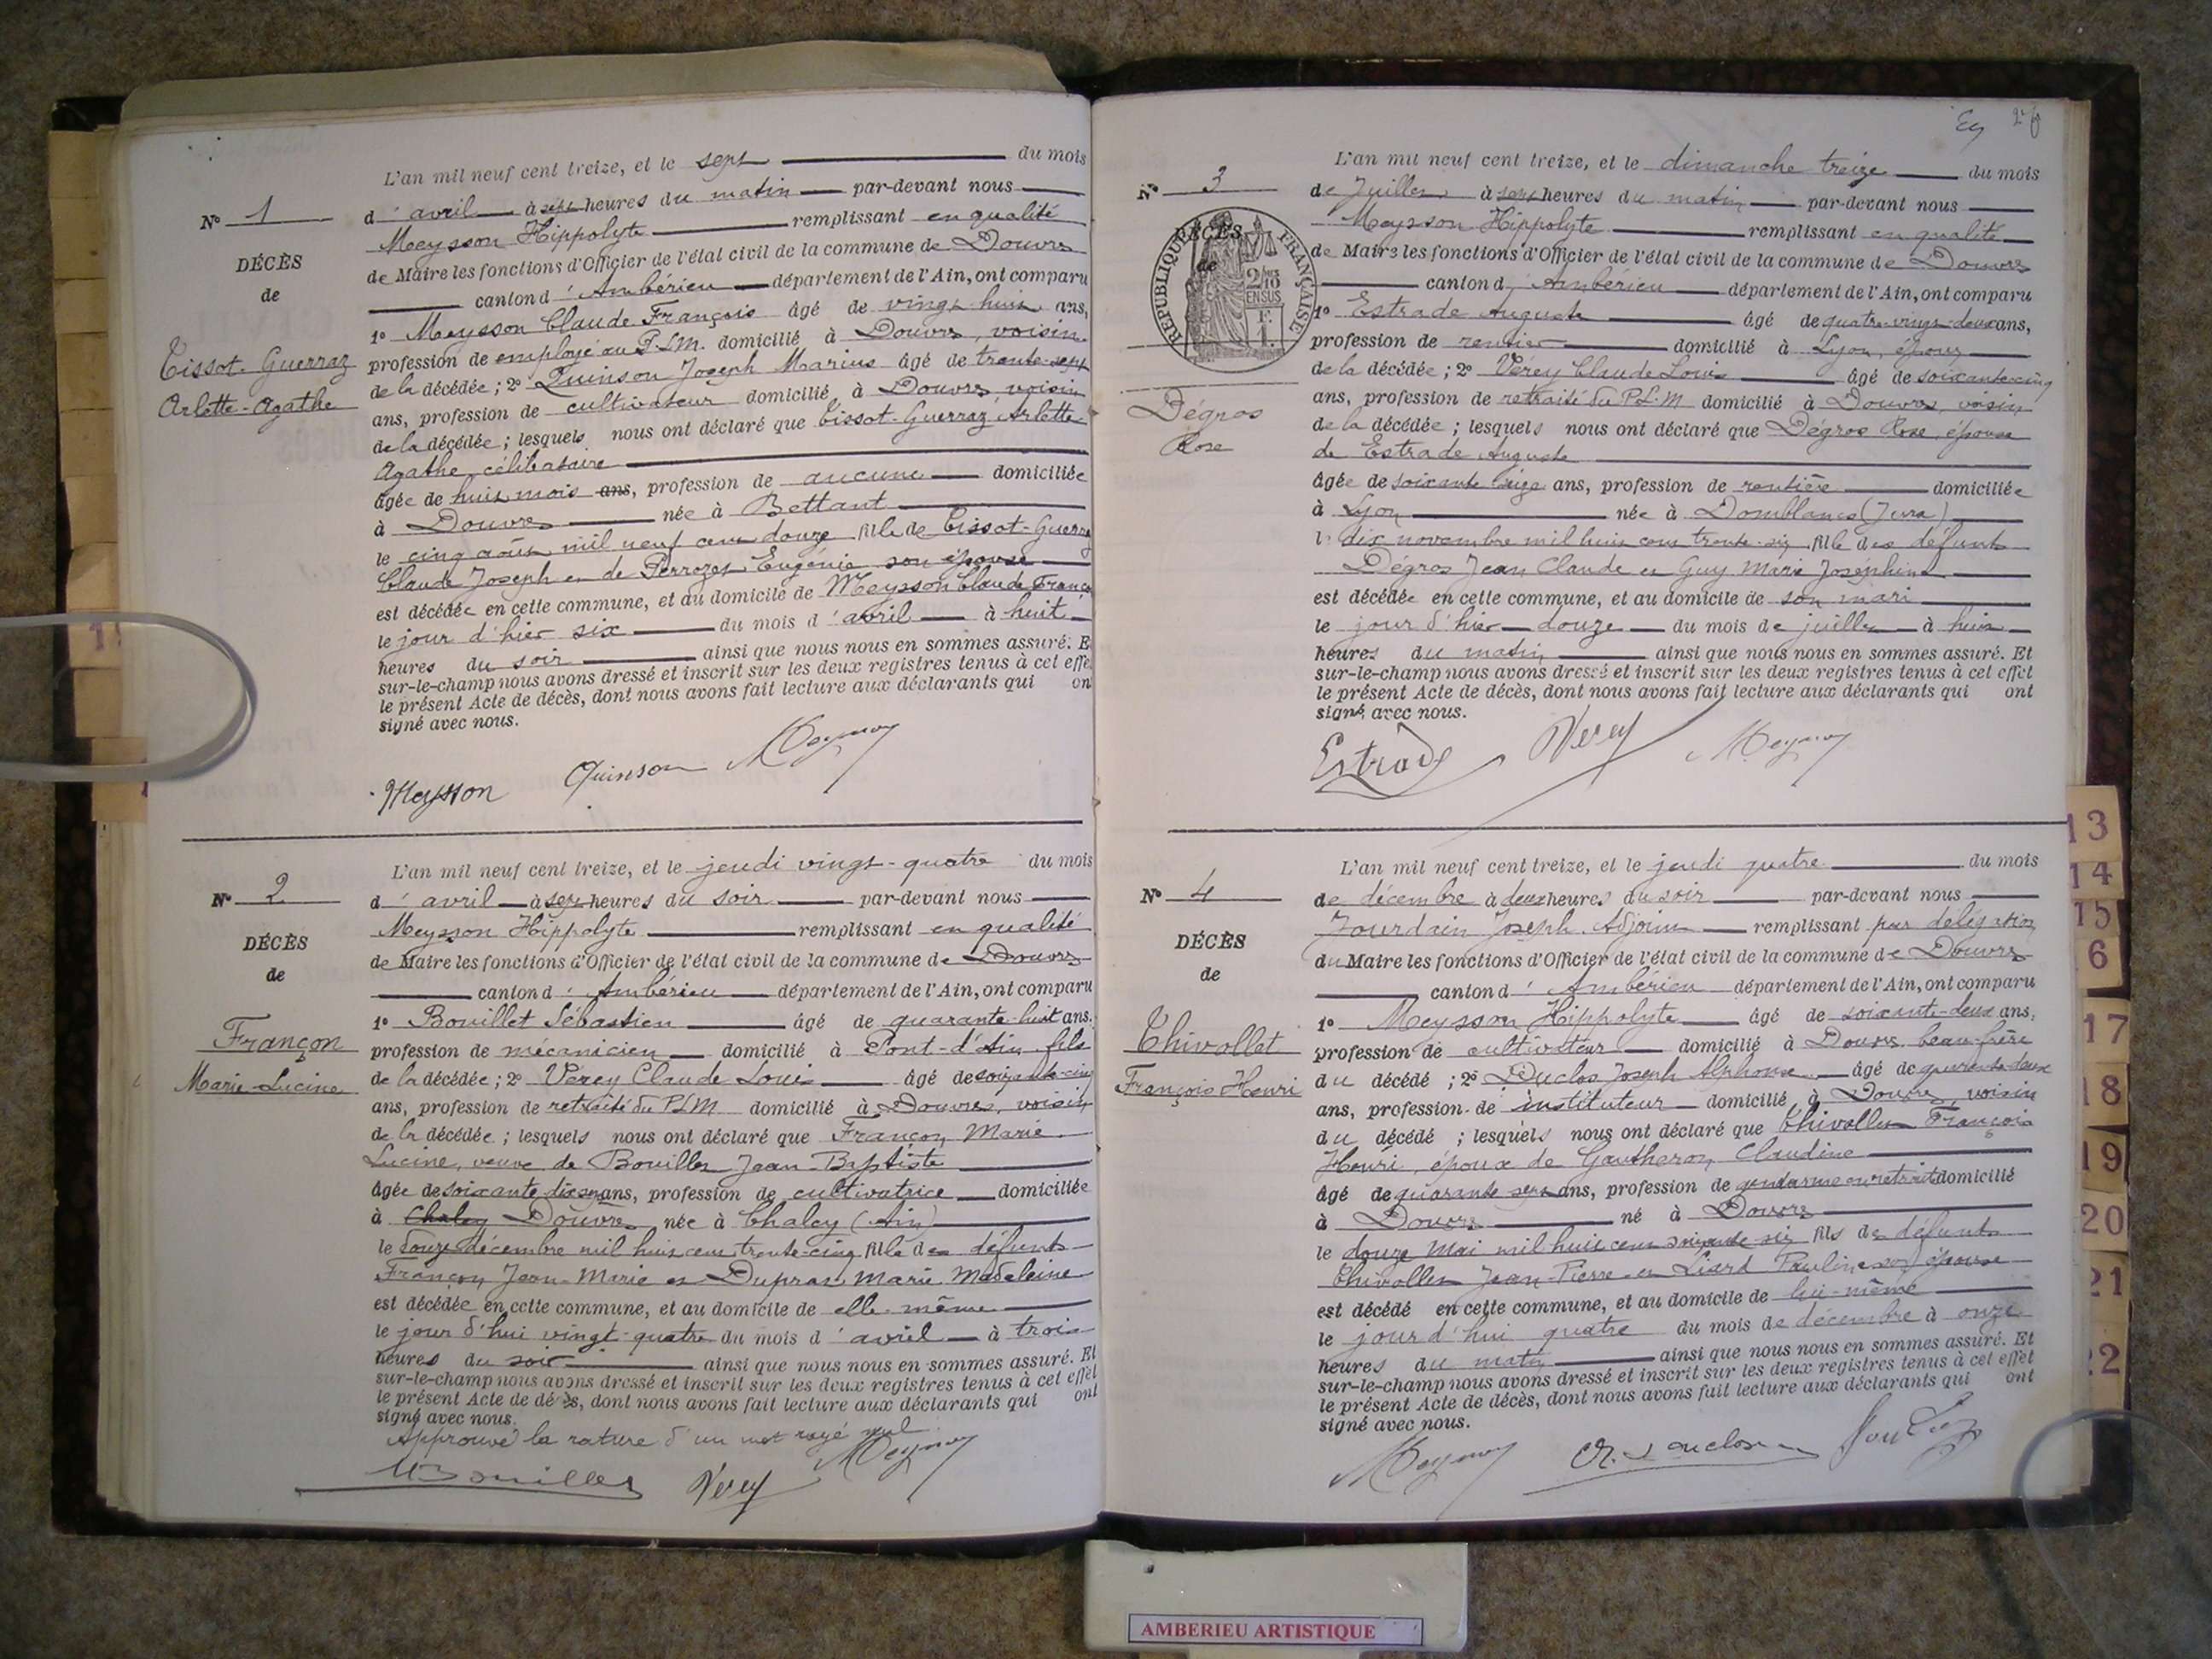 L'an mil neuf cent treize, et le sept du mois
N° 1
d'avril à sept heures du matin par-devant nous
Meysson Hippolyte remplissant en qualité
DÉCÈS
de
de Maire les fonctions d'Officier de l'état civil de la commune de Douvres
canton d'Ambérieu département de l'Ain, ont comparu
1° Meysson Claude François âgé de vingt-huit ans,
Tissot-Guerraz
Arlette-Agathe
profession de employé au P.L.M. domicilié à Douvres, voisin
de la décédée ; 2° Quinson Joseph Marius âgé de trente-sept
ans, profession de cultivateur domicilié à Douvres, voisin
de la décédée ; lesquels nous ont déclaré que Tissot-Guerraz, Arlette
Agathe, célibataire
âgée de huit mois ans, profession de aucune domiciliée
à Douvres née à Bettant
le cinq août mil neuf cent douze fille de Tissot-Guerraz
Claude Joseph et de Perrozet Eugénie son épouse
est décédée en cette commune, et au domicile de Meysson Claude Franço
le jour d'hier six du mois d'avril à huit
heures du soir ainsi que nous nous en sommes assuré. E
sur-le-champ nous avons dressé et inscrit sur les deux registres tenus à cet effe
le présent Acte de décès, dont nous avons fait lecture aux déclarants qui on
signé avec nous.
Meysson Quinson Meysson
L'an mil neuf cent treize, et le jeudi vingt-quatre du mois
N° 2
d'avril à sept heures du soir par-devant nous
Meysson Hippolyte remplissant en qualité
DÉCÈS
de
de Maire les fonctions d'Officier de l'état civil de la commune de Douvres
canton d'Ambérieu département de l'Ain, ont comparu
1° Bouillet Sébastien âgé de quarante-huit ans,
Françon
Marie-Lucine
profession de mécanicien domicilié à Pont-d'Ain, fils
de la décédée ; 2° Verey Claude Louis âgé de soixante-cinq
ans, profession de retraité du PLM domicilié à Douvres, voisin
de la décédée ; lesquels nous ont déclaré que Françon Marie
Lucine, veuve de Bouillet Jean-Baptiste
âgée de soixante dix sept ans, profession de cultivatrice domiciliée
à Chaley Douvres née à Chaley (Ain)
le douze décembre mil huit cent trente-cinq fille des défunts
Françon Jean-Marie et Dupras Marie Madeleine
est décédée en cette commune, et au domicile de elle-même
le jour d'hui vingt-quatre du mois d'avril à trois
heures du soir ainsi que nous nous en sommes assuré. Et
sur-le-champ nous avons dressé et inscrit sur les deux registres tenus à cet effet
le présent Acte de décès, dont nous avons fait lecture aux déclarants qui ont
signé avec nous.
Approuvé la rature d'un mot rayé nul
Bouillet Verey Meysson
L'an mil neuf cent treize, et le dimanche treize du mois
N° 3
de Juillet à sept heures du matin par-devant nous
Meysson Hippolyte remplissant en qualité
DÉCÈS
de
RÉPUBLIQUE FRANÇAISE
2/10 EN SUS
de Maire les fonctions d'Officier de l'état civil de la commune de Douvres
canton d'Ambérieu département de l'Ain, ont comparu
1° Estrade Auguste âgé de quatre-vingt-deux ans,
profession de rentier domicilié à Lyon, époux
de la décédée ; 2° Vérey Claude Louis âgé de soixante-cinq
Dégros
Rose
ans, profession de retraité du P.L.M domicilié à Douvres, voisin
de la décédée ; lesquels nous ont déclaré que Dégros Rose, épouse
de Estrade Auguste
âgée de soixante seize ans, profession de rentière domiciliée
à Lyon née à Domblans (Jura)
le dix novembre mil huit cent trente-six fille des défunts
Dégros Jean Claude et Guy Marie Joséphine
est décédée en cette commune, et au domicile de son mari
le jour d'hier douze du mois de juillet à huit
heures du matin ainsi que nous nous en sommes assuré. Et
sur-le-champ nous avons dressé et inscrit sur les deux registres tenus à cet effet
le présent Acte de décès, dont nous avons fait lecture aux déclarants qui ont
signé avec nous.
Estrade Verey Meysson
L'an mil neuf cent treize, et le jeudi quatre du mois
N° 4
de décembre à deux heures du soir par-devant nous
Jourdain Joseph, Adjoint remplissant par délégation
DÉCÈS
de
du Maire les fonctions d'Officier de l'état civil de la commune de Douvres
canton d'Ambérieu département de l'Ain, ont comparu
1° Meysson Hippolyte âgé de soixante-deux ans,
Chivollet
François Henri
profession de cultivateur domicilié à Douvres, beau-frère
du décédé ; 2° Duclos Joseph Alphonse âgé de quarante-deux
ans, profession de instituteur domicilié à Douvres, voisin
du décédé ; lesquels nous ont déclaré que Chivollet François
Henri, époux de Gautheron Claudine
âgé de quarante sept ans, profession de gendarme en retraite domicilié
à Douvres né à Douvres
le douze Mai mil huit cent soixante-six fils des défunts
Chivollet Jean-Pierre et Liard Pauline son épouse
est décédé en cette commune, et au domicile de lui-même
le jour d'hui quatre du mois de décembre à onze
heures du matin ainsi que nous nous en sommes assuré. Et
sur-le-champ nous avons dressé et inscrit sur les deux registres tenus à cet effet
le présent Acte de décès, dont nous avons fait lecture aux déclarants qui ont
signé avec nous.
Meysson Duclos
13
14
15
6
17
18
19
20
21
22
AMBERIEU ARTISTIQUE